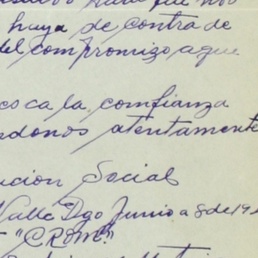 huya de contra de
del compromizo aque
osca la comfianza
donos atentamente
ucion Social
Valle Dgo Junio a 8 de 19
"CROM"